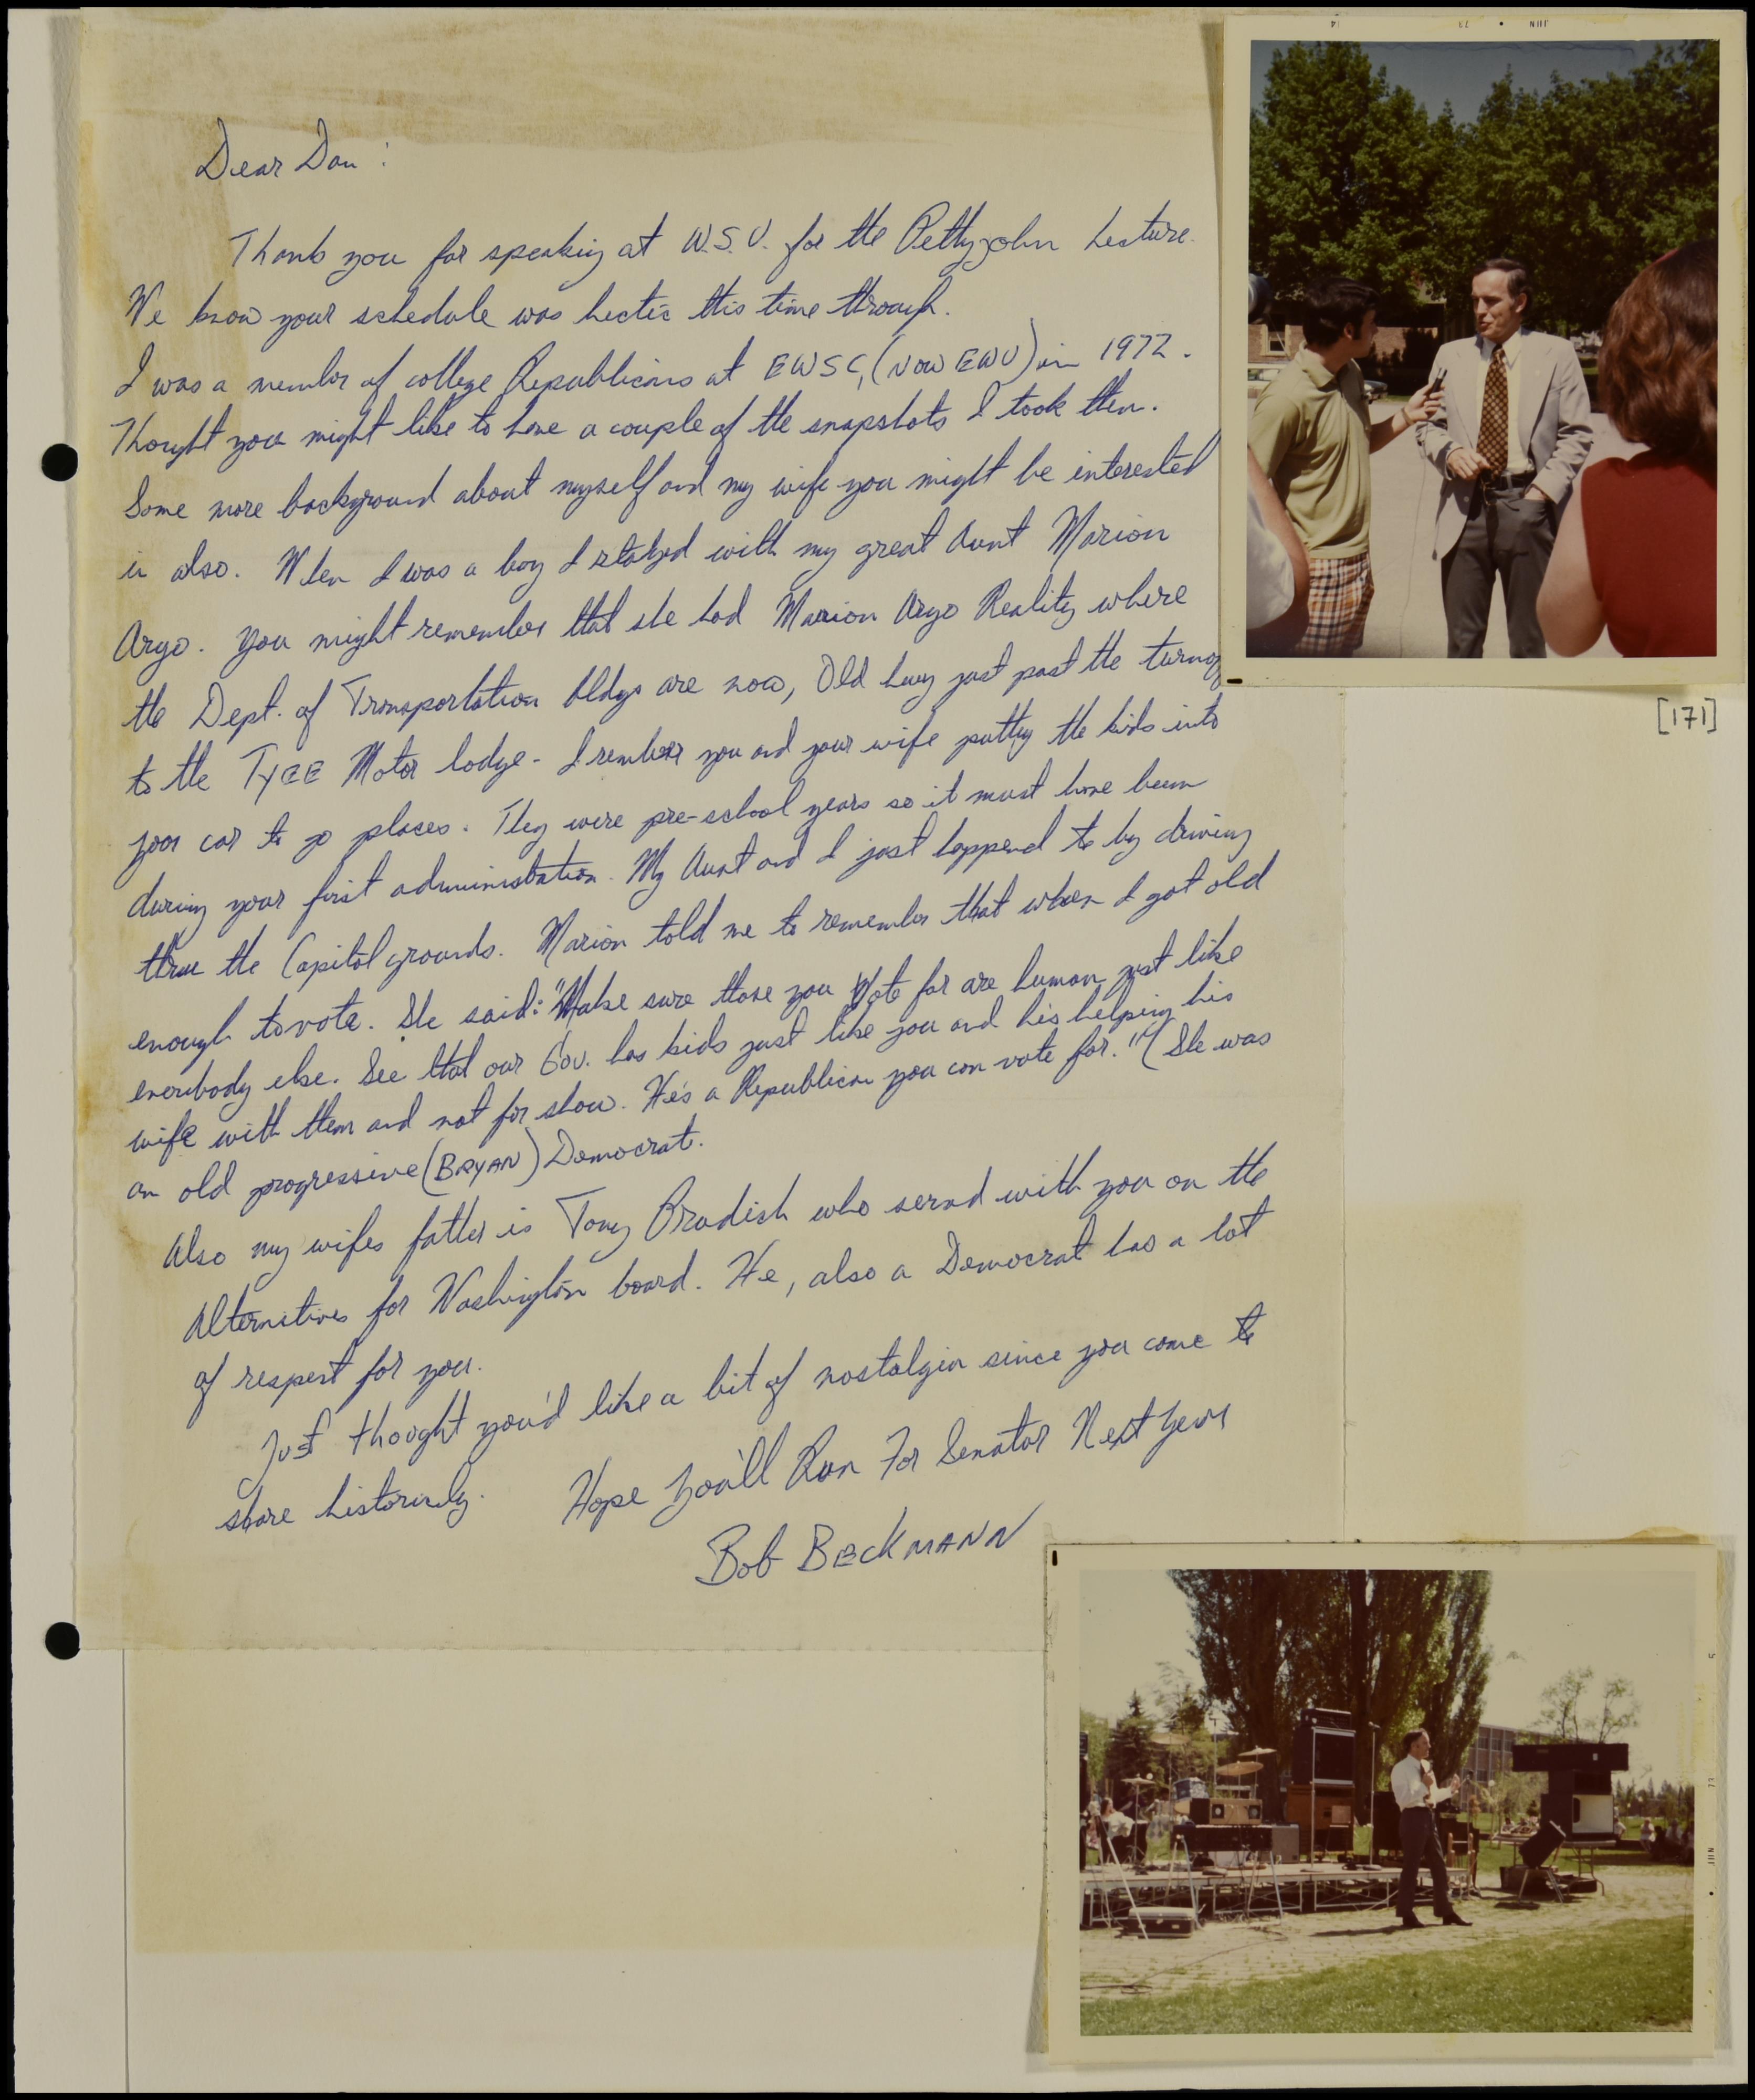 Dear Dan:
Thank you for speaking at W.S.U. for the Pettyjohn Lecture.
We know your schedule was hectic this time through.
I was a member of college Republicans at EWSC, (NOW EWU) in 1972.
Thought you might like to have a couple of the snapshots I took then.
Some more background about myself and my wife you might be interested
in also. When I was a boy I stayed with my great Aunt Marion
Argo. You might remember that she had Marion Argo Reality where
the Dept. of Transportation bldgs are now, Old hwy just past the turnof
to the TYEE Motor lodge - I rember you and your wife putting the kids into
your car to go places. They were pre-school years so it must have been
during your first administration. My Aunt and I just happend to by driving
thru the Capitol grounds. Marion told me to remember that when I got old
enough to vote. She said: "Make sure those you Vote for are human just like
everybody else. See that our Gov. has kids just like you and his helping his
wife with them and not for show. He's a Republican you can vote for." (She was
an old progressive (BRYAN) Democrat.
Also my wifes father is Tony Bradish who served with you on the
Alternatives for Washington board. He, also a Democrat has a lot
of respect for you.
Just thought you'd like a bit of nostalgia since you come to
share historicaly. Hope You'll Run For Senator Next Year
Bob BECKMANN
JUN • 73 14
[171]
JUN 73 5